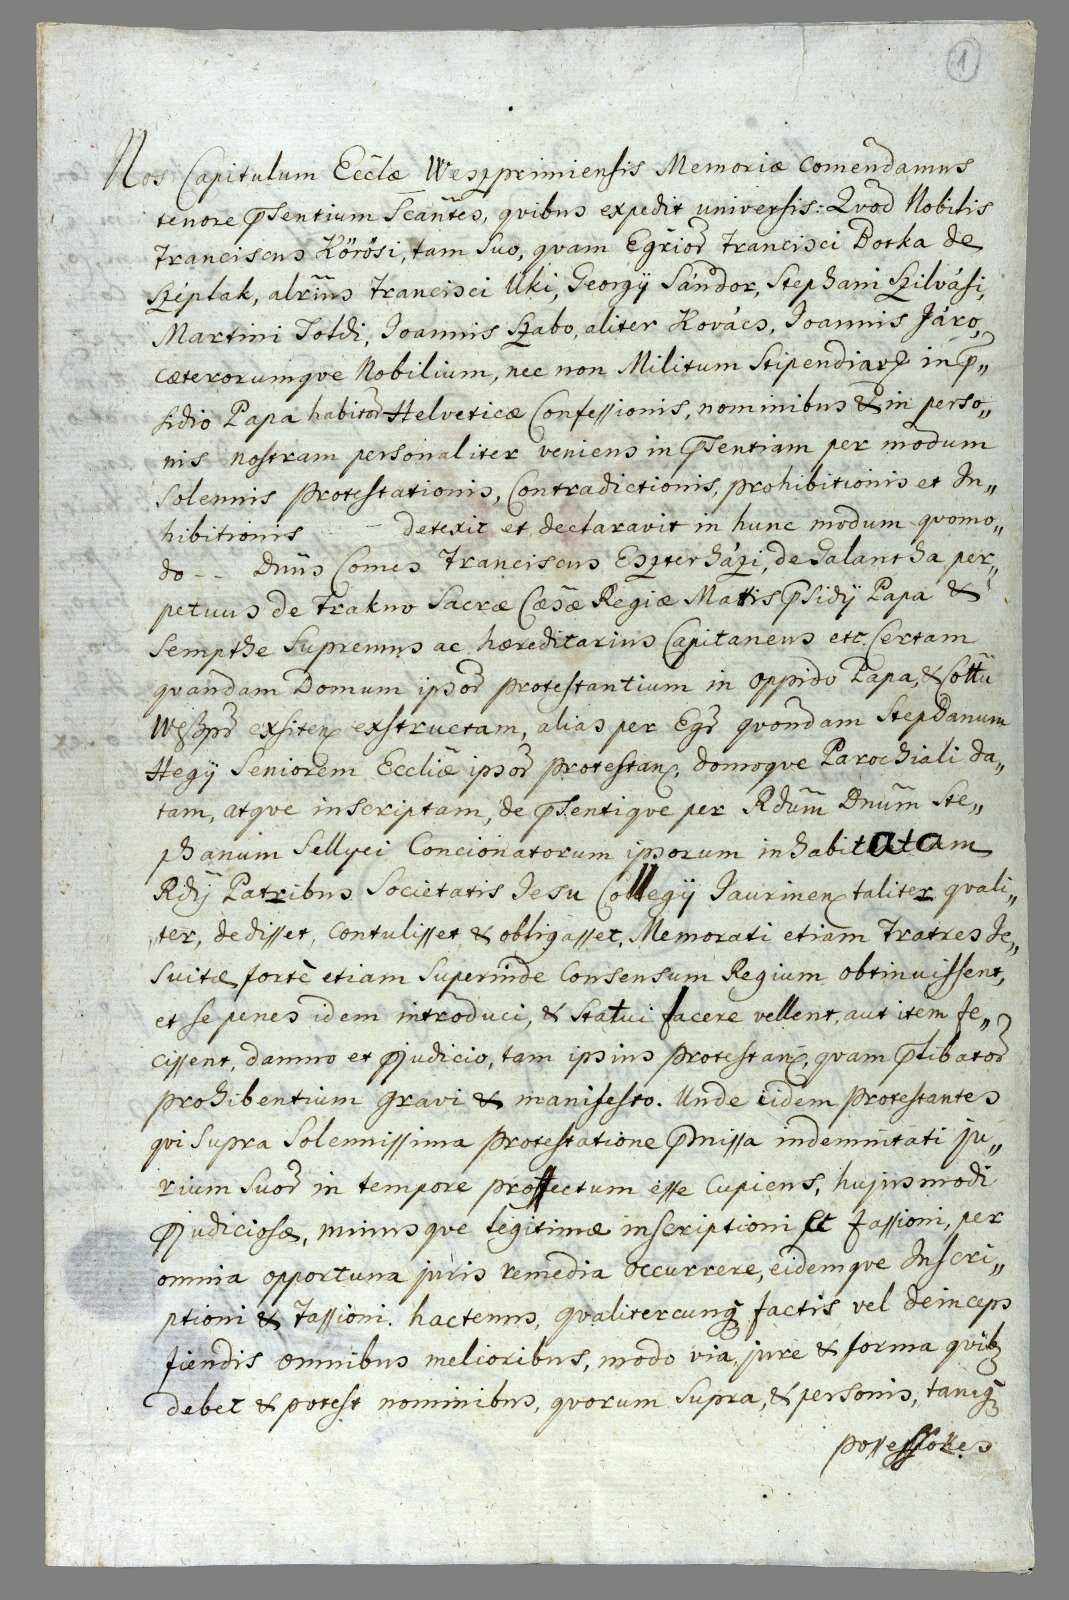 1
Nos Capitulum Ecclæ Weszprimiensis Memoriæ Comendamus
tenore pñsentium Scañtes, qvibus expedit universis: Qvod Nobilis
Franciscus Körösi, tam suo, qvam Egrior Francisci Botka de
Széplak, alrius Francisci Uki, Georgÿ Sándor, Stephani Szilvási,
Martini Toldi, Joannis Szabo, aliter Kovács, Joannis Járo,
cæterorumqve Nobilium, nec non Militum Stipendiar in p„
sidio Papa habitor Helveticæ Confessionis, nominibus & in perso„
nis nostram personaliter veniens in psentiam per modum
Solennis Protestationis, Contradictionis, prohibitionis et In„
hibitionis – detexit et declaravit in hunc modum qvomo„
do – – Dnus Comes Franciscus Eszterházi, de Galantha per„
petuus de Frakno Sacræ Cæsæ Regiæ Mattis psidÿ Papa &
Sempthe Supremus ac hæreditarius Capitaneus etc. Certam
qvandam Domum ipsor protestantium in oppido Papa, & Cottu
Weszpr exsiten exstructam, alias per Egr qvondam Stephanum
Hegÿ Seniorem Eccliæ ipsor protestan, domoqve Parochiali da„
tam, atqve inscriptam, de psentiqve per Rdum Dnum Ste„
phanum Sellyei Concionatorum ipsorum inhabitatam
Rdÿ Patribus Societatis Jesu Collegÿ Jaurinen taliter qvali„
ter, dedisset, contulisset & obligasset, Memorati etiam Fratres Je„
suitæ fortè etiam superinde Consensum Regium obtinuissent,
et se penes idem introduci, & Statui facere vellent, aut item fe„
cissent, damno et pjudicio, tam ipsius protestan, qvam plibator
prohibentium gravi & manifesto. Unde iidem protestantes
qvi supra Solennissima protestatione pmissa indemnitati ju„
rium suor in tempore proffectum esse Cupiens, hujusmodi
pjudiciosæ, minusqve legitimæ inscriptioni et Fassioni, per
omnia opportuna juris remedia occurrere, eidemqve Inscri„
ptioni & Fassioni hactenus, qvalitercunq factis vel deinceps
fiendis omnibus melioribus, modo via, jure & forma qvib
debet & potest nominibus, qvorum supra, & personis, tanq
possessores